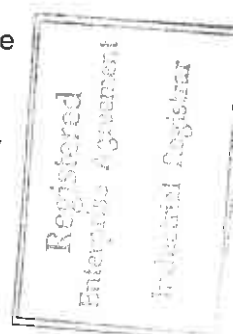 e
Registered
Enterprise Agreement
Industrial Registrar